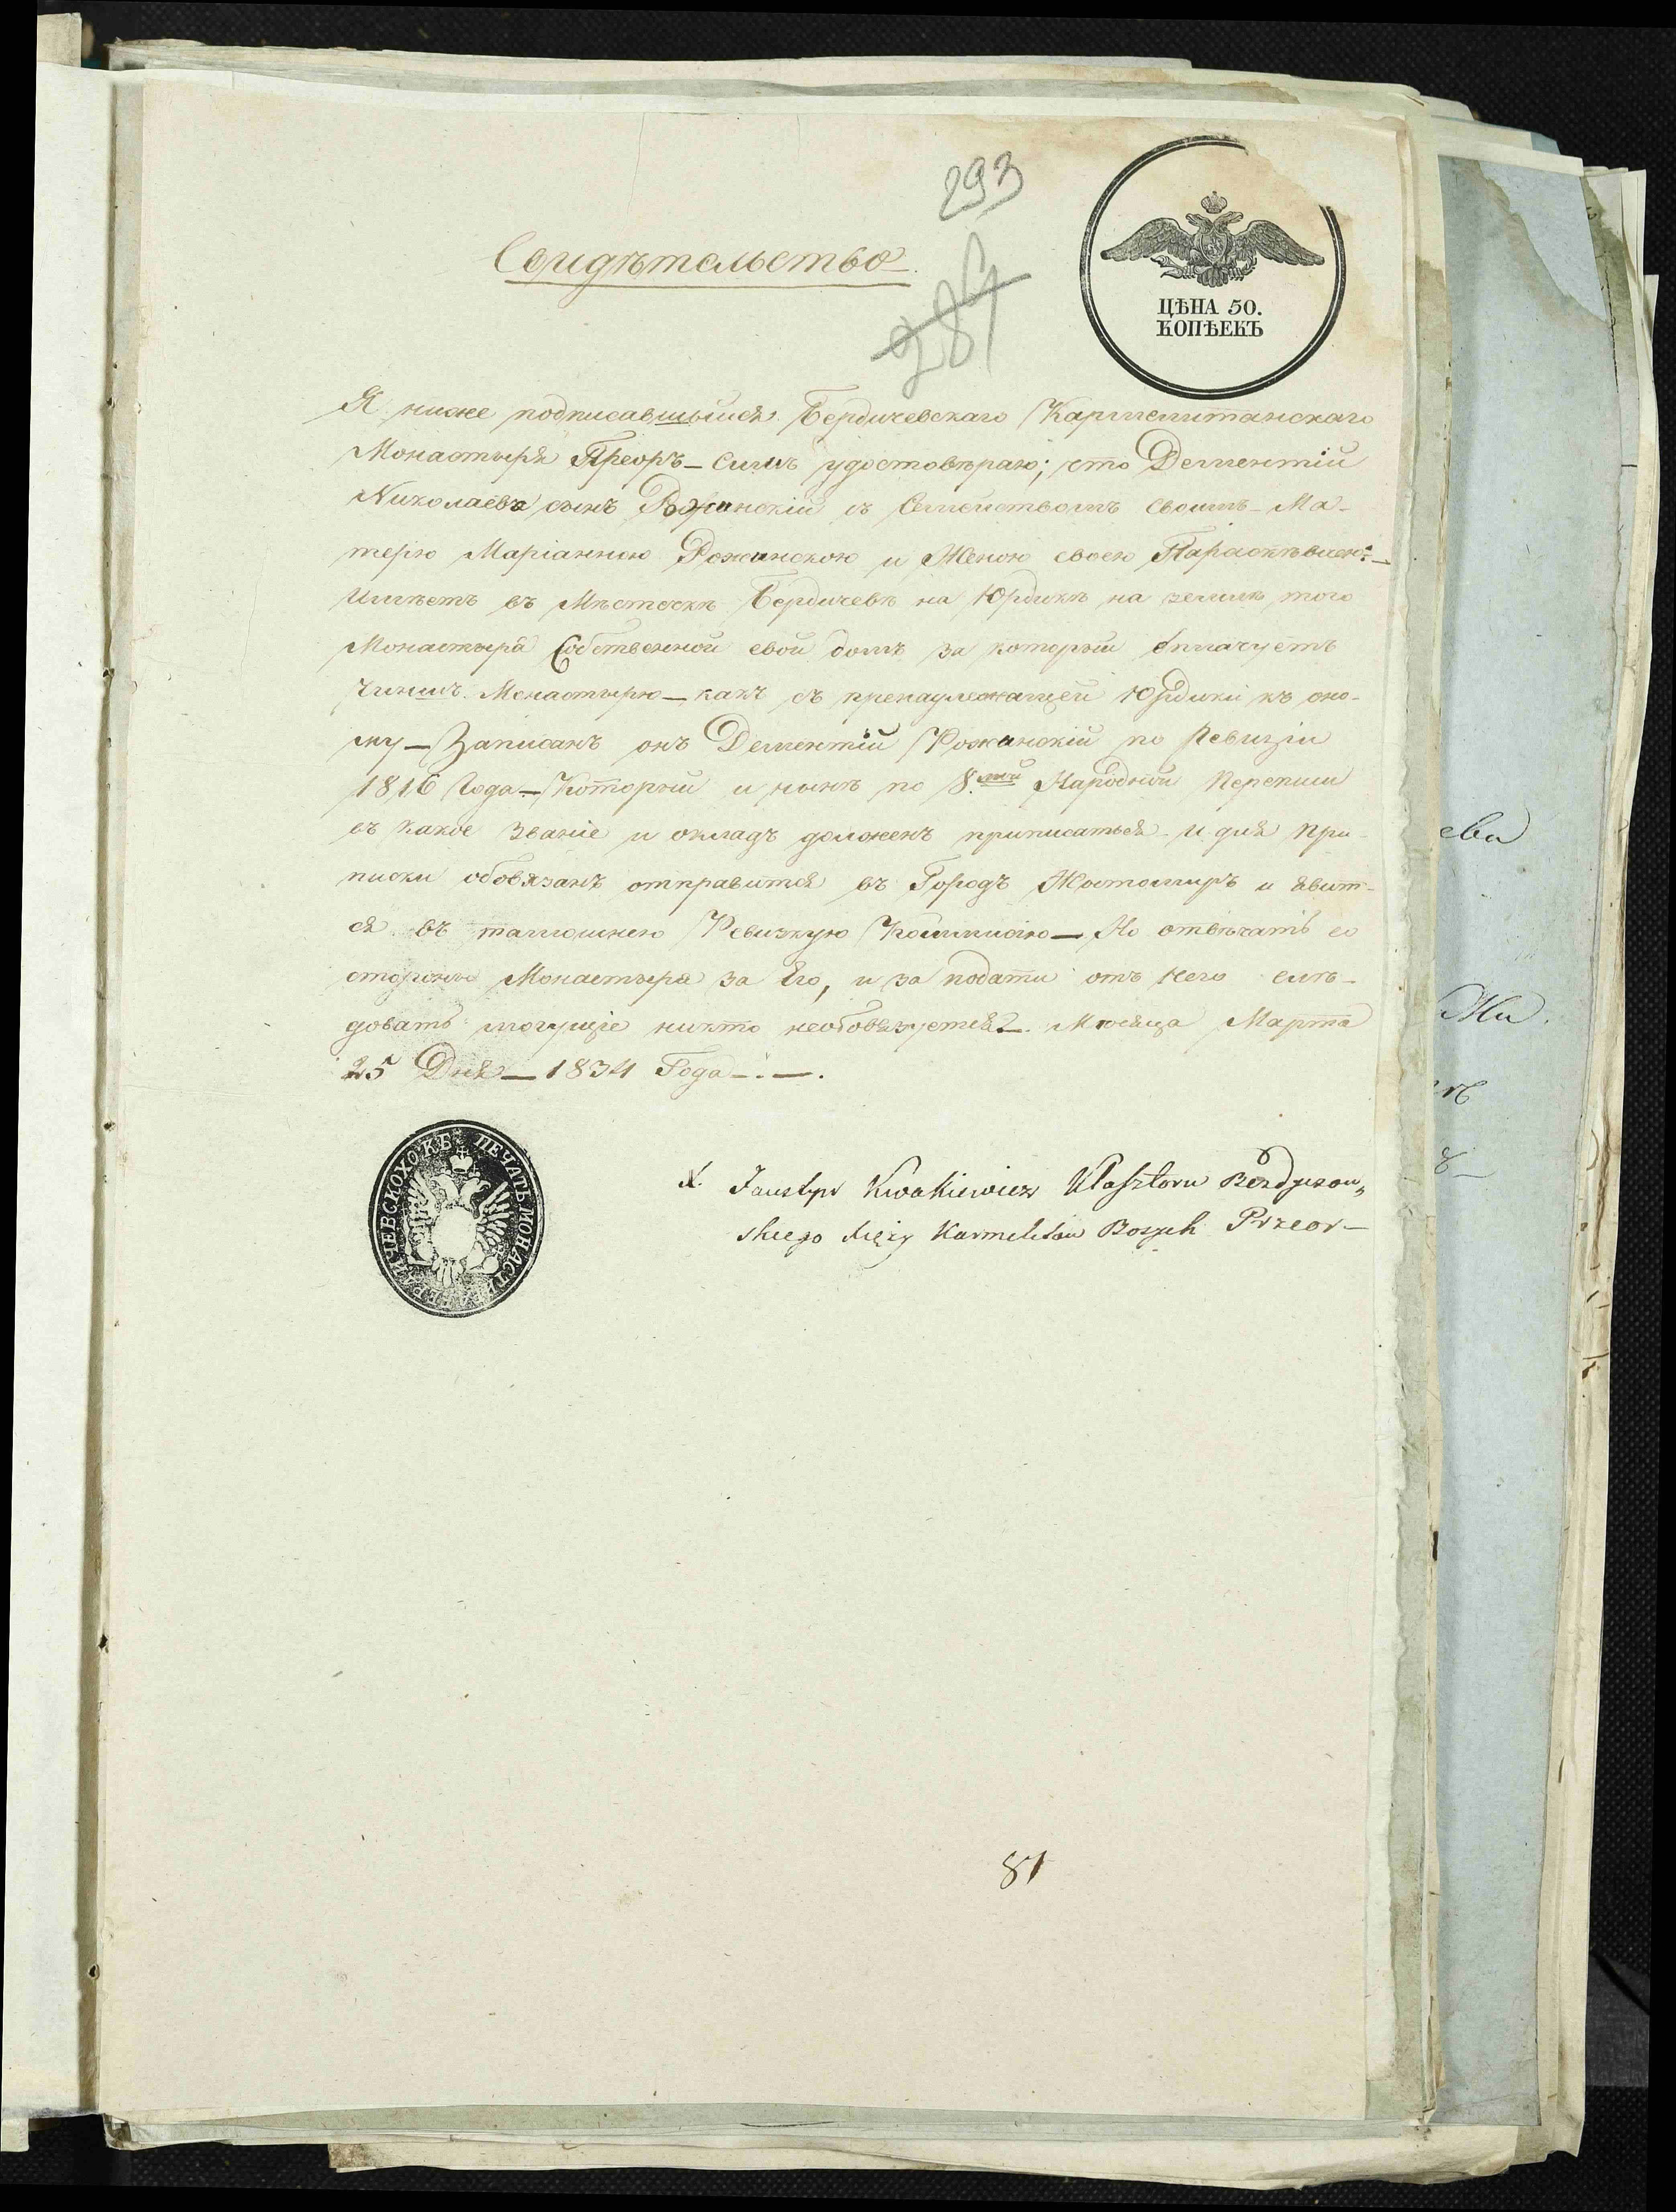 293
Свидѣтельство
284
ЦѢНА 50.
КОПѢЕКЪ
Я ниже подписавшыйся Бердичевскаго Кармелитанскаго
Монастыря Преоръ — симъ удостовѣраю; што Дементій
Николаевъ сынъ Рожанскій съ Семействомъ своимъ - Ма-
терію Маріанною Рожанскою и Женою своею Параскѣвіею
Имѣетъ въ Мѣстечкѣ Бердичевѣ на Юрдикѣ на землѣ того
Монастыра Собственной свой домъ за который оплачуетъ
Чиншъ Монастырю — какъ съ пренадлежащей Юрдики къ оно-
му — Записанъ онъ Дементій Рожанскій по Ревизіи
1816 Года — Который и нынѣ по 8.мой Народной Переписи
въ какое Званіе и окладъ долженъ приписаться - И для при-
писки обовязанъ отправится въ Городъ Жытомиръ и явит-
ся въ тамошнею Ревизкую Коммисію — Но отвѣчать со
стороны Монастыра за Его, и за подати отъ него слѣ-
довать могущіе никто необовязуется. Мѣсяца Марта
25 Дня — 1834 Года
ПЕЧАТЬ МОНАСТ БЕРДИЧЕВСКОХО К Б
X. Faustyn Kwakiewicz Klasztoru Berdyczow„
skiego Xięży Karmelitow Bosych Przeor —
81
ева
Жи